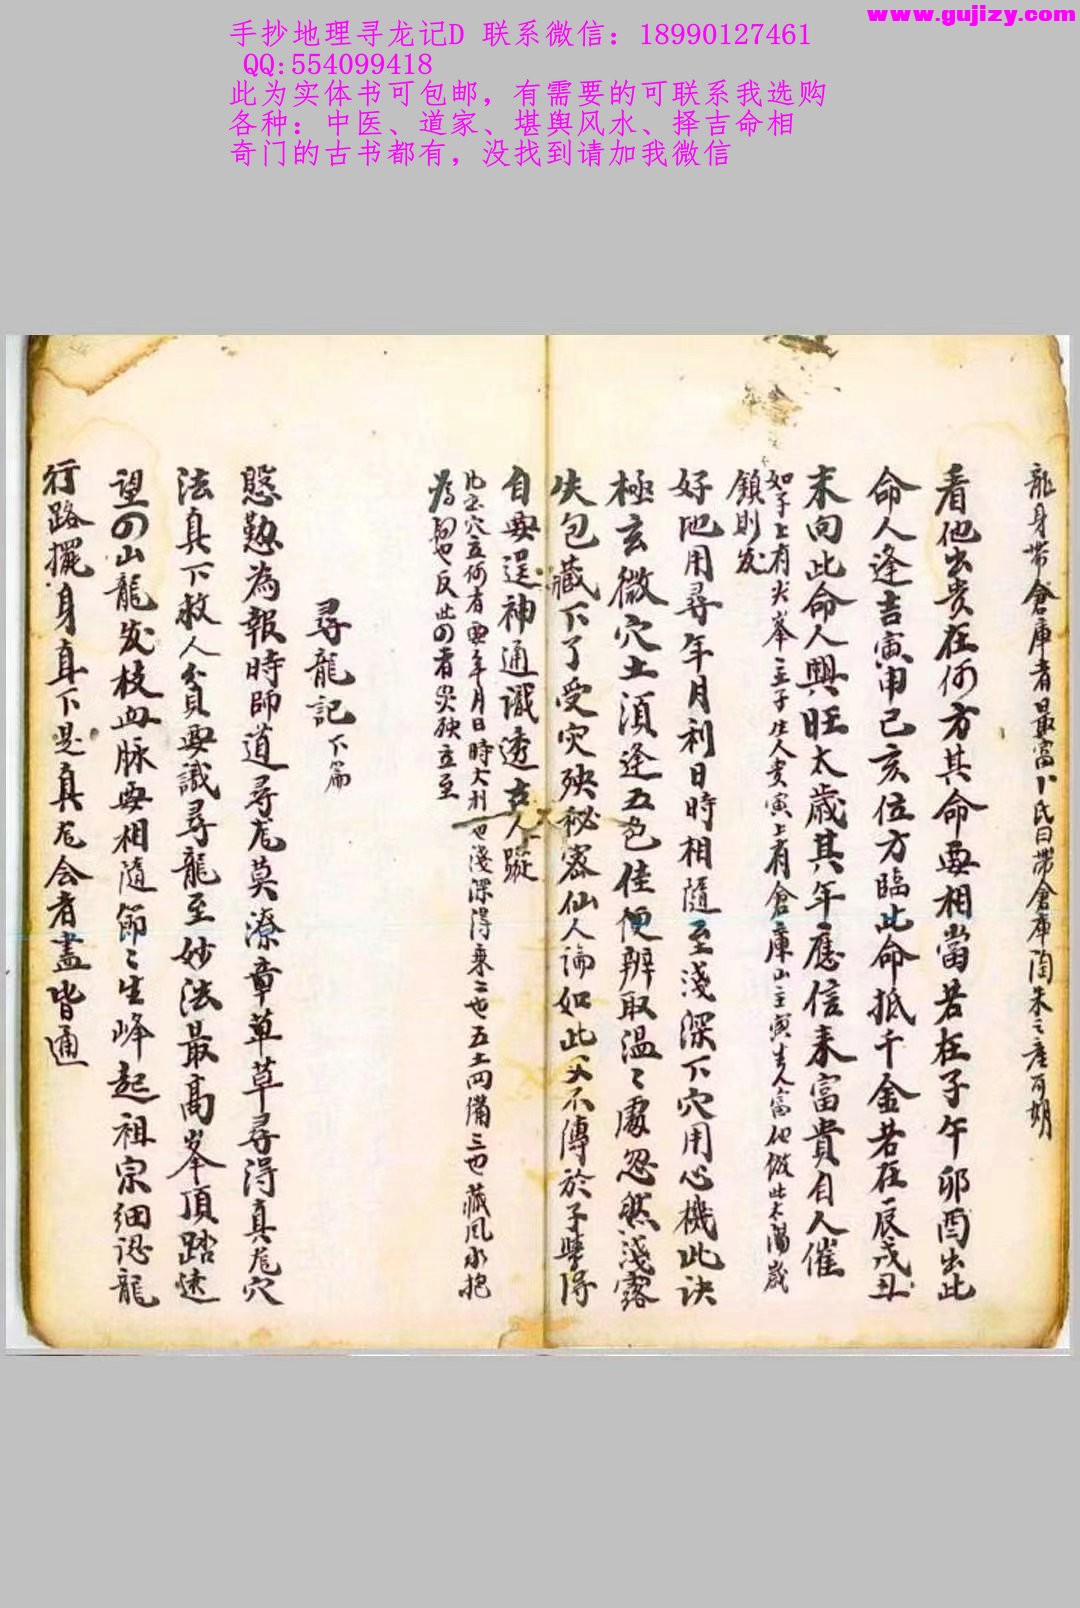 www.gujizy.com
手抄地理寻龙记D 联系微信：18990127461
QQ:554099418
此为实体书可包邮，有需要的可联系我选购
各种：中医、道家、堪舆风水、择吉命相
奇门的古书都有，没找到请加我微信
龍身帶倉庫者最富卜氏曰帶倉庫陶朱之産可期
看他出贵在何方其命要相當若在子午卯酉出此
命人逢吉寅申巳亥位方臨此命抵千金若在辰戌丑
末向此命人興旺太歲其年應信來富貴自人催
如子上有尖峯主子生人貴寅上有倉庫山主寅生人富他倣此太陽歲
鎮則发
好地用尋年月利日時相隨至淺深下穴用心機此诀
極玄微穴土須逢五色佳便辨取温〻處忽然浅露
失包藏下了受灾殃秘密仙人論如此父不傳於子學得
自要逞神通識透古人蹤
凡立穴立何者要年月日時大利一也淺深得乘二也五土四備三也藏风水抱
為四也反此四者灾殃立至
尋龍記下篇
慇懃為報時師道尋龙莫潦章草草尋得真龙穴
法真下救人貧要識尋龍至妙法最高峯頂踏逐
望四山龍发枝血脉要相隨節〻生峰起祖宗细認龍
行路擺身真下是真龙会者盡皆通